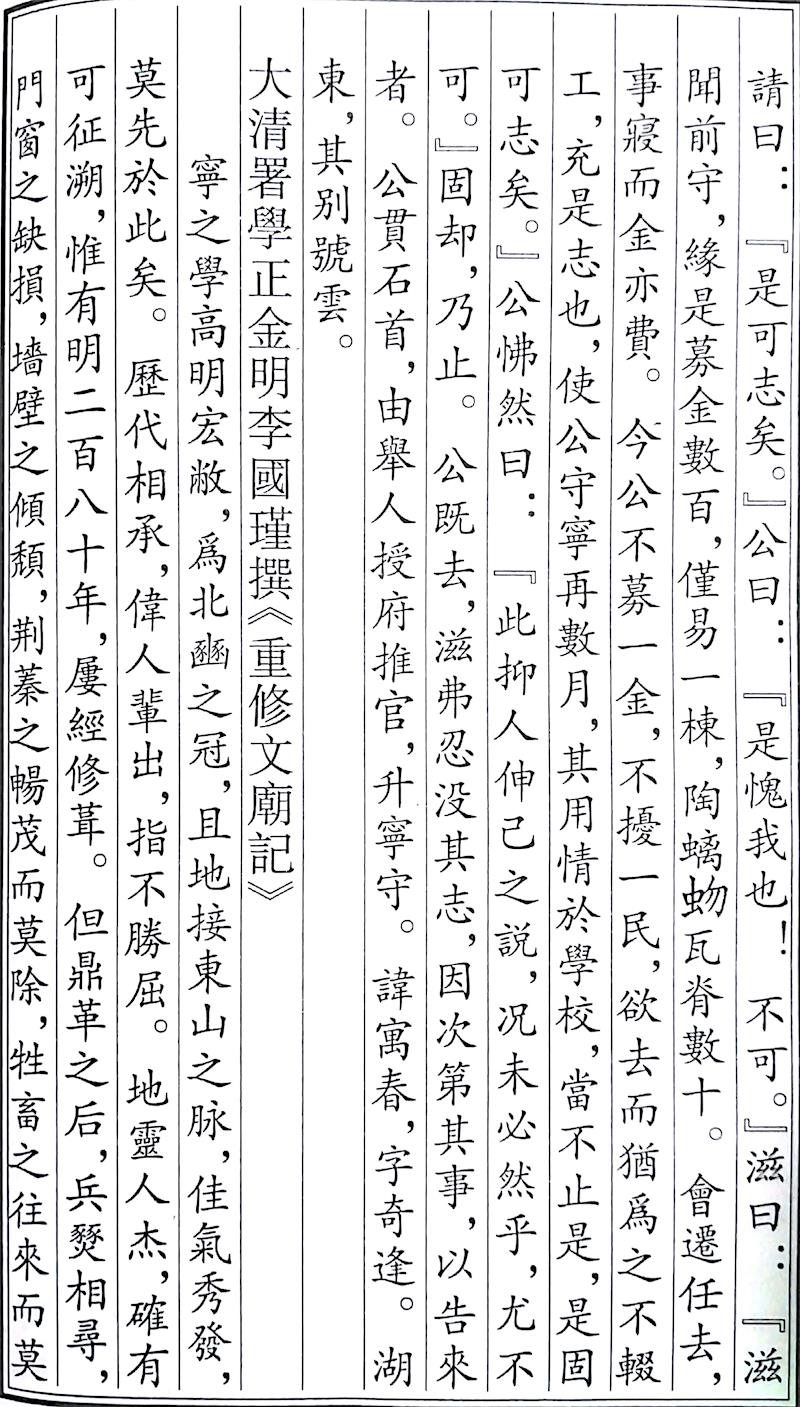 請曰：『是可志矣。』公曰：『是愧我也！不可。』滋曰：『滋
聞前守，緣是募金數百，僅易一棟，陶螭蚴瓦脊數十。會遷任去，
事寢而金亦費。今公不募一金，不擾一民，欲去而猶爲之不輟
工，充是志也，使公守寧再數月，其用情於學校，當不止是，是固
可志矣。』公怫然曰：『此抑人伸己之説，况未必然乎，尤不
可。』固却，乃止。公既去，滋弗忍没其志，因次第其事，以告來
者。公貫石首，由舉人授府推官，升寧守。諱寓春，字奇逢。湖
東，其别號雲。
大清署學正金明李國瑾撰《重修文廟記》
寧之學高明宏敞，爲北豳之冠，且地接東山之脉，佳氣秀發，
莫先於此矣。歷代相承，偉人輩出，指不勝屈。地靈人杰，確有
可征溯，惟有明二百八十年，屢經修葺。但鼎革之后，兵燹相尋，
門窗之缺損，墻壁之傾頽，荆蓁之暢茂而莫除，牲畜之往來而莫